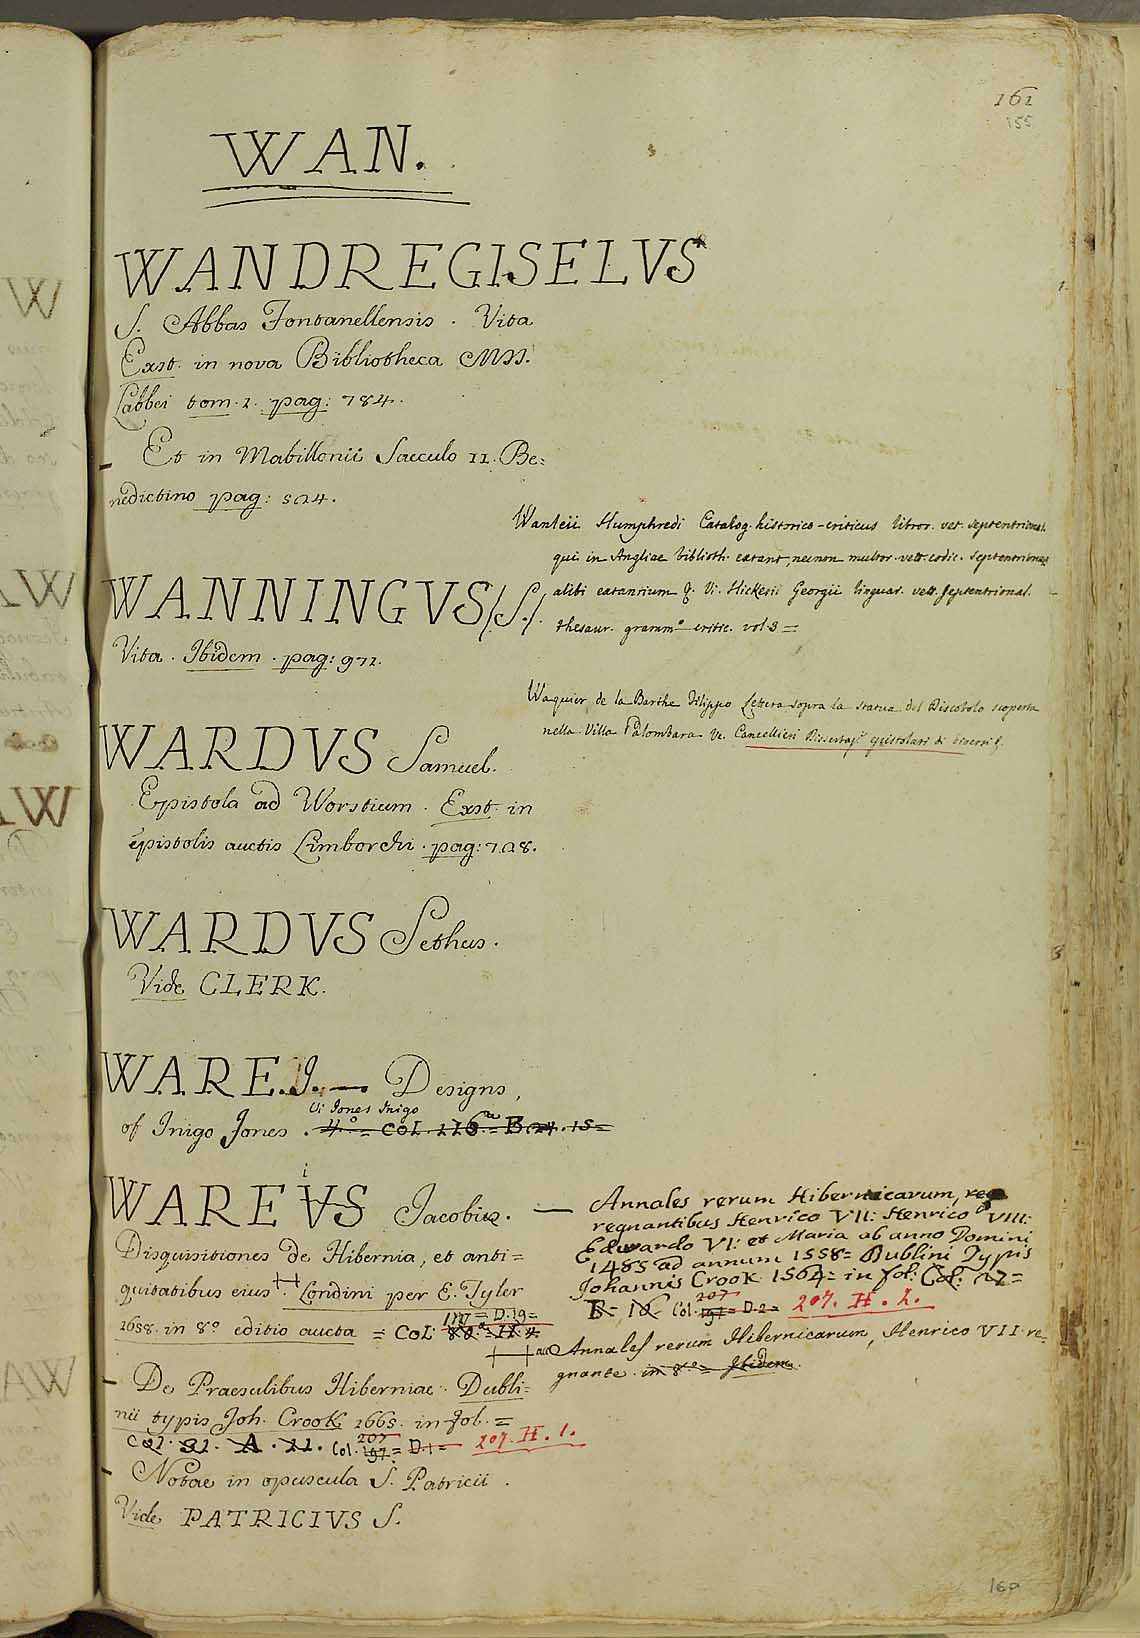 161
155
WAN.
WANDREGISELVS
S. Abbas Fontanellensis. Vita
Exst. in nova Bibliotheca MSS.
Labbei tom. 1. pag: 784.
Et in Mabillonii Saeculo II. Be=
nedictino pag: 524.
WANNINGVS /S./.
Vita. Ibidem. pag: 971.
WARDVS Samuel.
Epistola ad Vorstium. Exst. in
epistolis auctis Limborchi. pag: 708.
WARDVS Sethus.
Vide CLERK.
WARE. J. — Designs
Vi Jones Inigo
of Inigo Jones. 4.° = COL. 116.= B. 15=
WAREVS Jacobus.
Disquisitiones de Hibernia, et anti=
quitatibus eius. Londini per E. Tyler
D. 19=
1658. in 8.° editio aucta = COL
De Praesulibus Hiberniae. Dubli=
nii typis Joh. Crook 1665. in fol. =
COL. 31. A. 11. Col. 207 197= D. 1= 207. H. 1.
Notae in opuscula S. Patricii.
Vide PATRICIVS S.
Wanleii Humphredi Catalog. historico-criticus libror. vet. septentrional.
qui in Angliae biblioth. extant, necnon multor. vett. codic. septentrional
alibi extantium Vi. Hickesii Georgii linguar. vett. septentrional.
thesaur. gramm.° critic. vol. 3 =
Waquier de la Barthe Filippo Lettera sopra la statua del Discobolo scoperta
nella Villa Palombara Ve. Cancellieri Dissertaz.i epistolari di diversi
— Annales rerum Hibernicarum,
regnantibus Henrico VII: Henrico VIII:
Edwardo VI: et Maria ab anno Domini
1485 ad annum 1558= Dublini Typis
Johannis Crook 1564= in fol: Col:
B= Col. 207 197= D. 2= 207. H. 2.
Annales rerum Hibernicarum, Henrico VII re-
gnante. in 8.°= Ibidem.
160